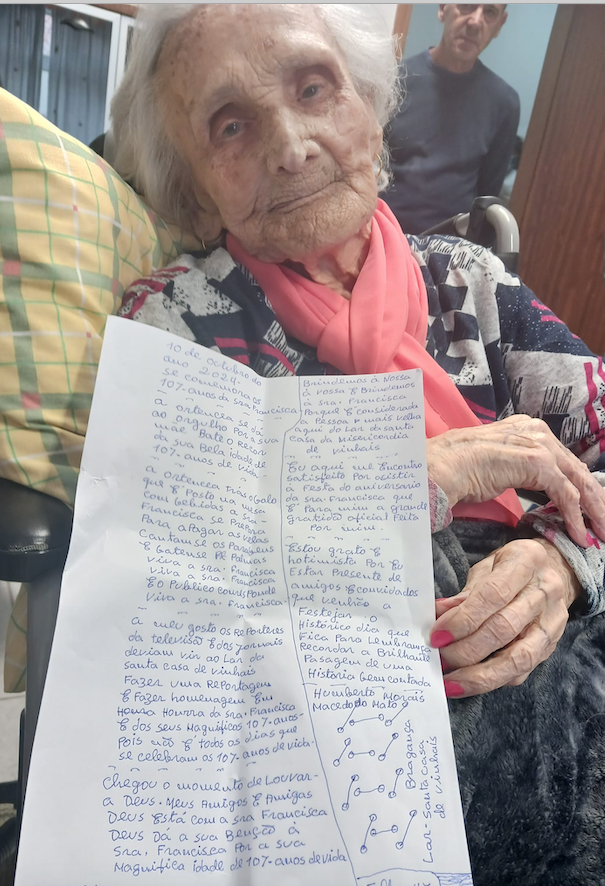 10 de Octubro do
ano 2024-
se comemora os
107-anos da sra, francisca
a ortencea se dá
ao orgulho Por sua
mãe Bate o Recor
da sua Bela idade de
107-anos de vida-
a ortencea trás o Bolo
que É Posto na mesa
com Bebidas a sra-
Francisca se PrePara
Para aPagar as velas
Cantam se os Parabens
E Batense Pè Palmas
viva a sra- francisca
viva a sra- francisca
E o Publico corresPonde
viva a sra- francisca
a meu gosto os RePorteres
da televisão E dos jornais
deviam vir ao Lar da
santa casa de vinhais
Fazer uma RePortagem
E Fazer homenagem Em
Honra Honrra da sra, Francisca
E dos seus Magnificos 107-anos-
Pois não É todos os dias que
se celebram os 107-anos de vida-
Chegou o momento de Louvar-
a Deus. Meus Amigos E Amigas
Deus Está com a sra Francisca
Deus Dá a sua Benção à
sra, Francisca Por a sua
Magnifica idade de 107-anos de vida
Brindemos à Nossa
à vossa E Brindemos
à sra- Francisca
Porque É considerada
a Pessoa + mais velha
aqui do Lar da santa
casa da Misericordia
de vinhais
Eu aqui me Encontro
satisfeito Por asistir
à Festa do aniversario
da sra- Francisca que
É Para mim a grande
gratidão oficial Feita
Por mim-
Estou grato E
hotimista Por Eu
Estar Presente de
amigos E convidados
que venhão a
Festejar o
Histórico dia que
Fica Para Lembrança
Recordar a Brilhante
Pasagem de uma
Historia Bem contada
Humberto Morais
Macedo do Mato
Bragança
Lar-Santa casa
de vinhais